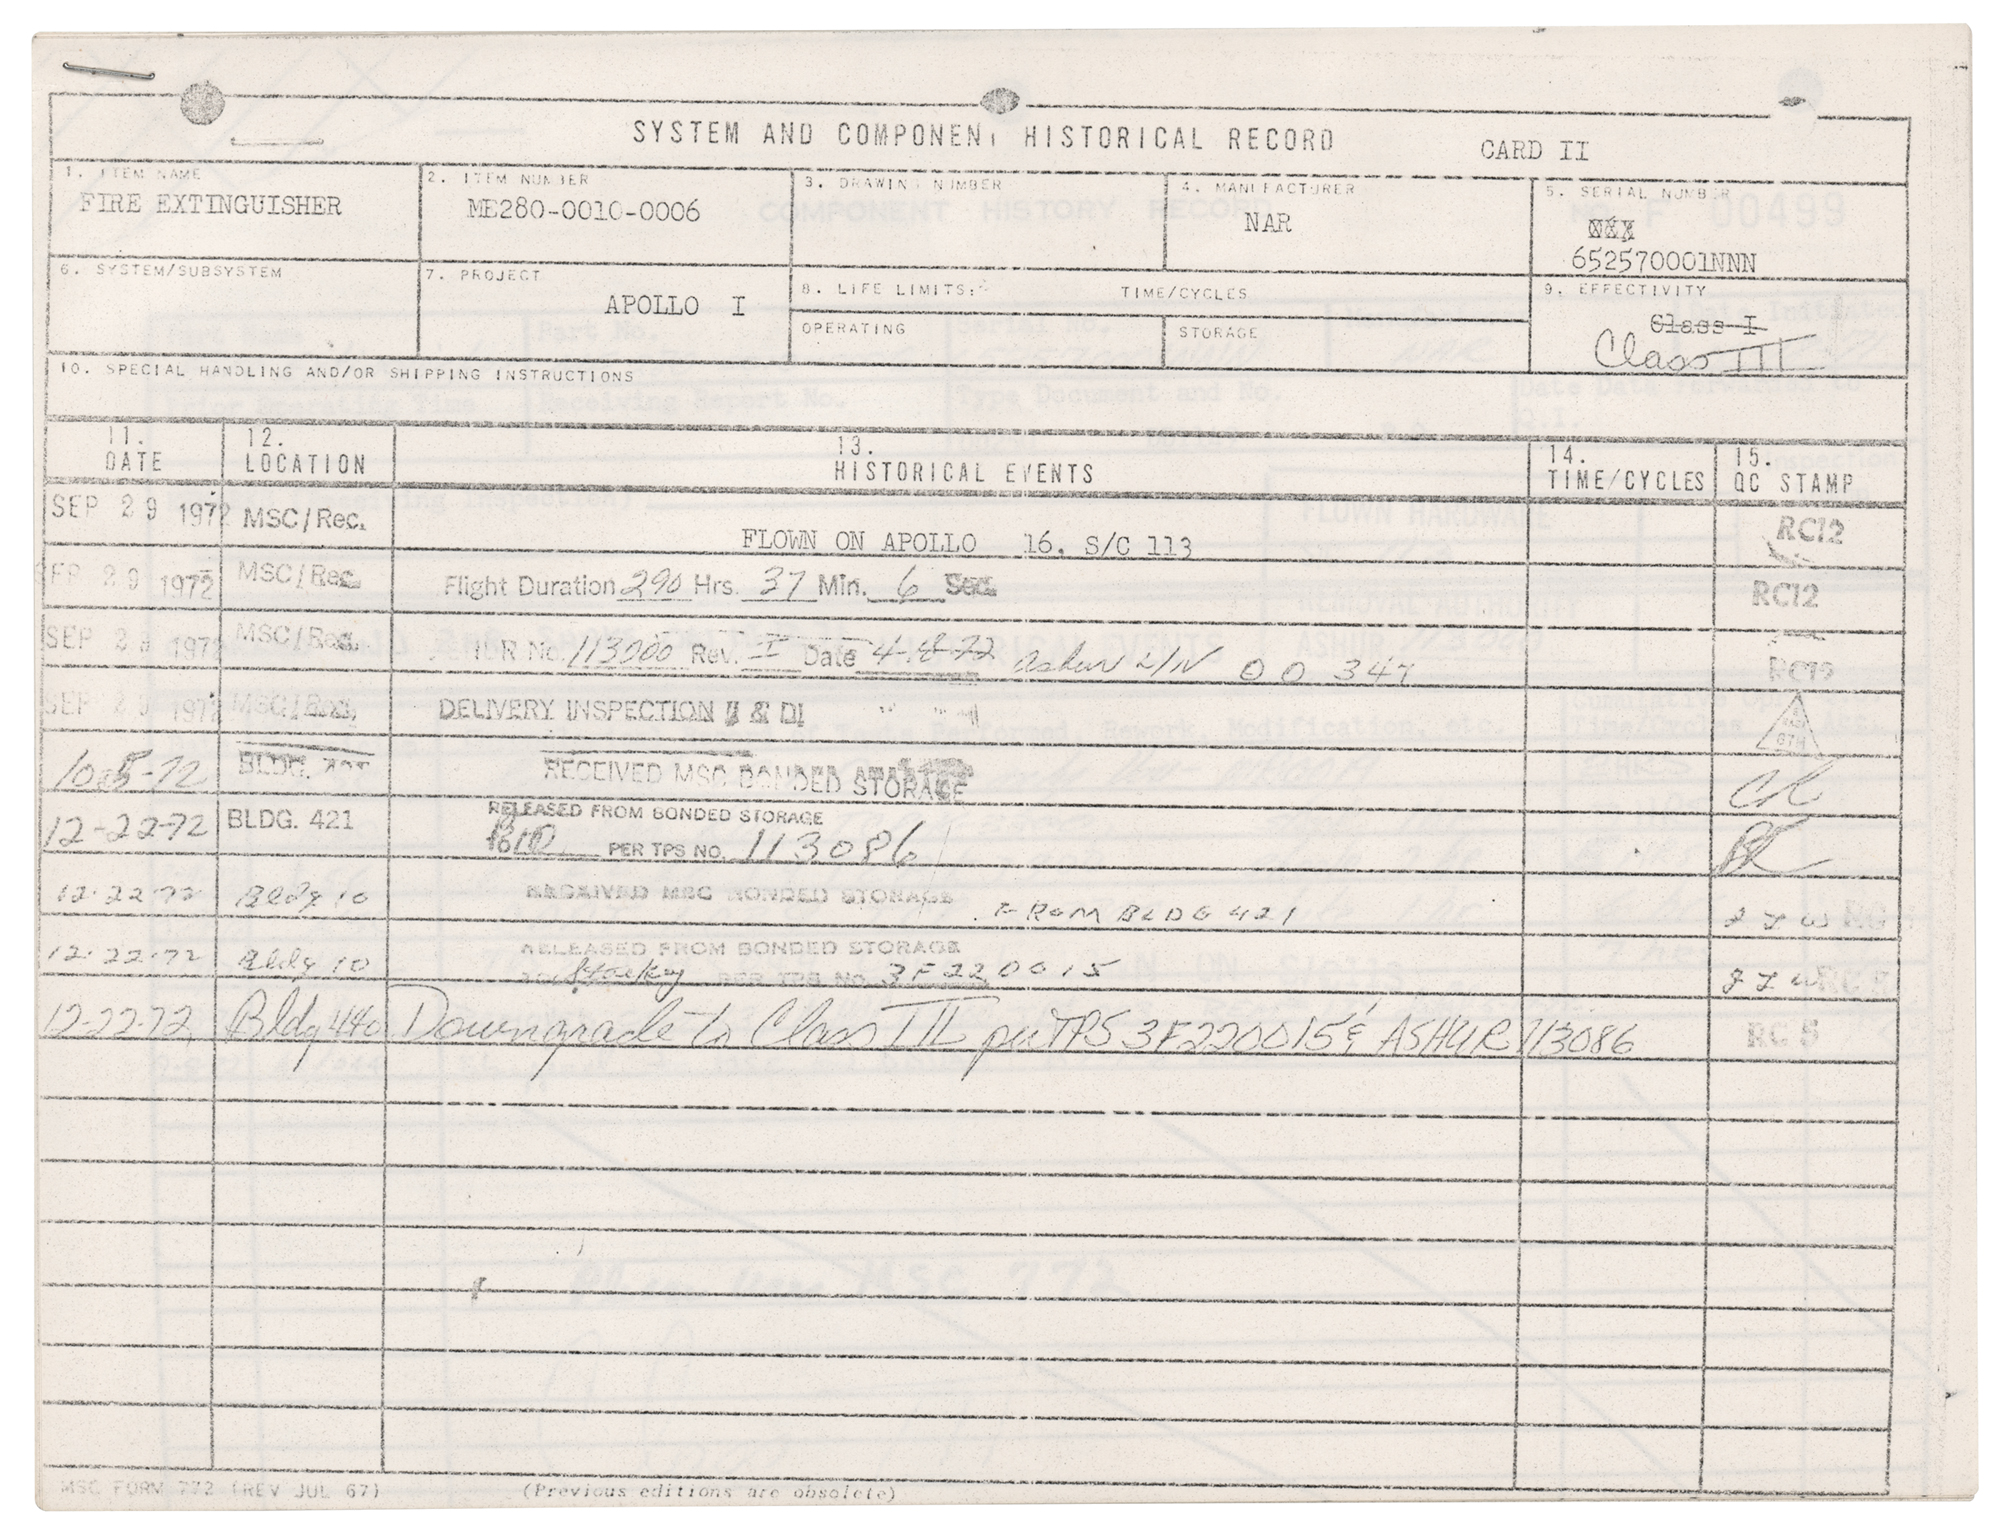 SYSTEM AND COMPONENT HISTORICAL RECORD CARD II
1. ITEM NAME
FIRE EXTINGUISHER
2. ITEM NUMBER
ME280-0010-0006
3. DRAWING NUMBER
4. MANUFACTURER
NAR
5. SERIAL NUMBER
652570001NNN
6. SYSTEM/SUBSYSTEM
7. PROJECT
APOLLO I
8. LIFE LIMITS: TIME/CYCLES
OPERATING
STORAGE
9. EFFECTIVITY
Class I
Class III
10. SPECIAL HANDLING AND/OR SHIPPING INSTRUCTIONS
11. DATE
12. LOCATION
13. HISTORICAL EVENTS
14. TIME/CYCLES
15. QC STAMP
SEP 29 1972 MSC/Rec. FLOWN ON APOLLO 16. S/C 113 RC12
SEP 29 1972 MSC/Rec. Flight Duration 290 Hrs. 37 Min. 6 Sec. RC12
SEP 29 1972 MSC/Rec. No. 113000 Rev. I Date 4-18-72 Ashur L/N 00347 RC12
SEP 29 1972 MSC/Rec. DELIVERY INSPECTION
10-5-72 BLDG. RECEIVED MSC BONDED STORAGE
12-22-72 BLDG. 421 RELEASED FROM BONDED STORAGE
PER TPS NO. 113086
12-22-72 Bldg 10 RECEIVED MSC BONDED STORAGE
FROM BLDG 421
12-22-72 Bldg 10 RELEASED FROM BONDED STORAGE
PER TPS No. 3F220015
12-22-72 Bldg 440 Downgrade to Class III per TPS 3F220015 & ASHUR 113086 RC 5
MSC FORM 772 (REV JUL 67) (Previous editions are obsolete)